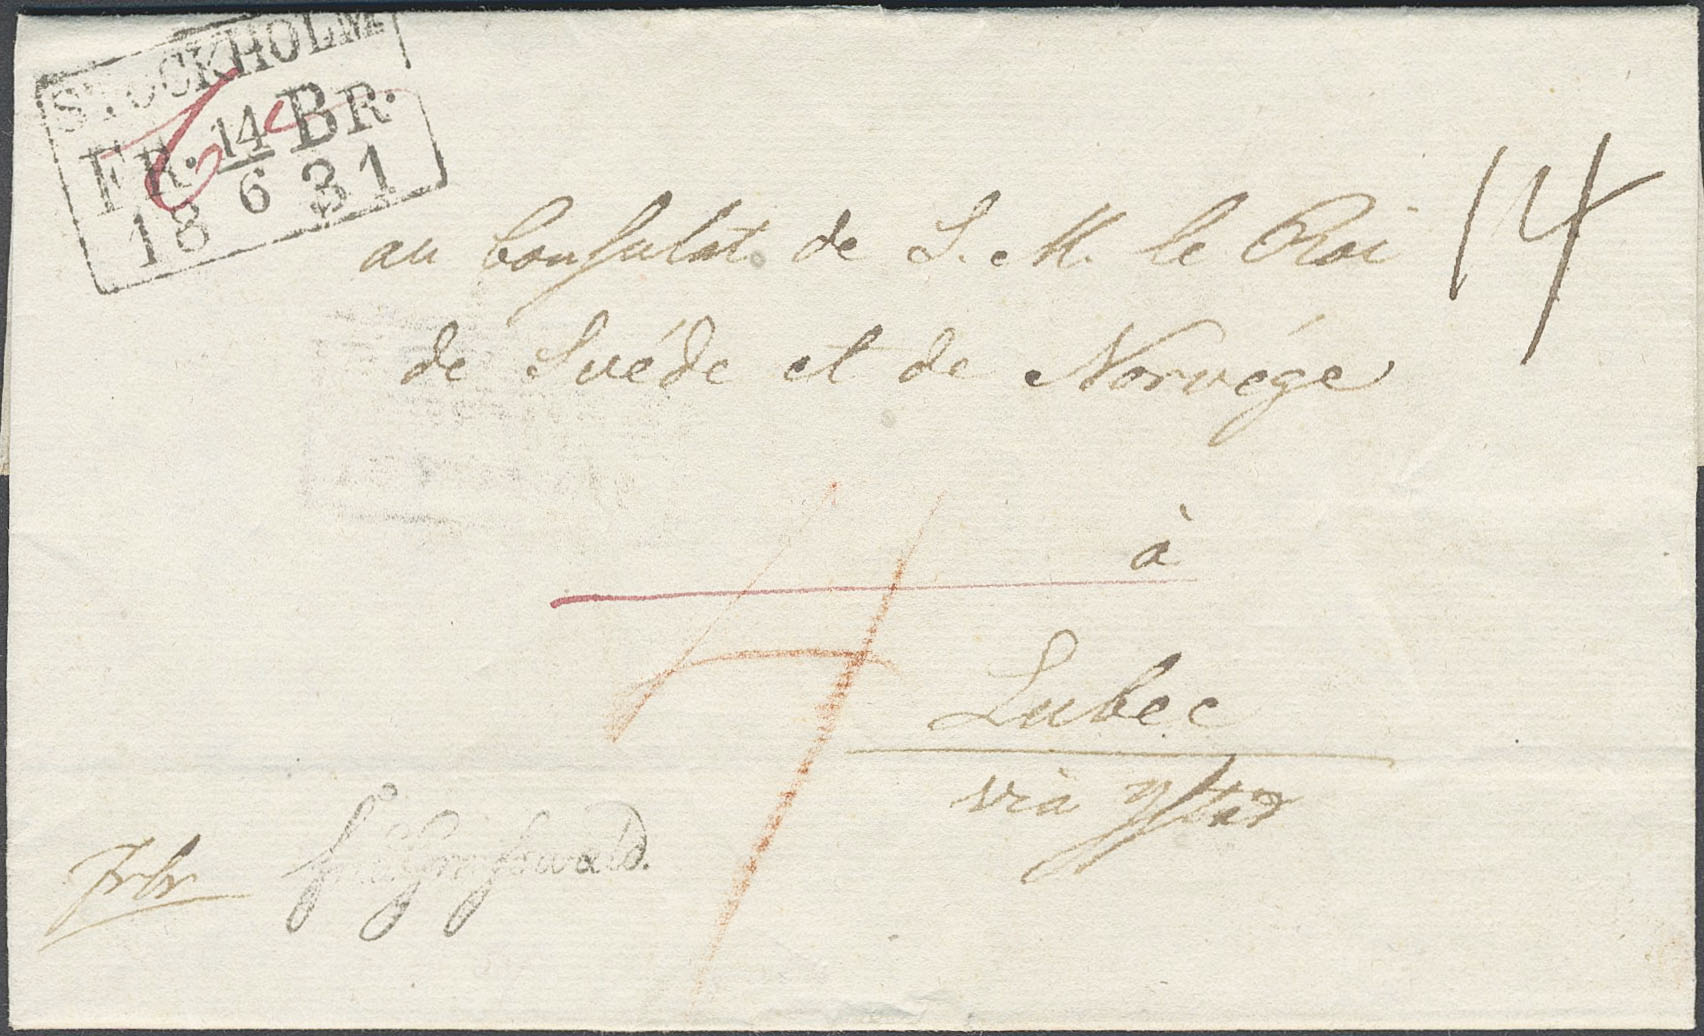 STOCKHOLM
FR: 14/6 BR:
1831
14
au Consulat de S. M. le Roi
de Suéde et de Norvége
à
Lubec
via Ystad
frbr